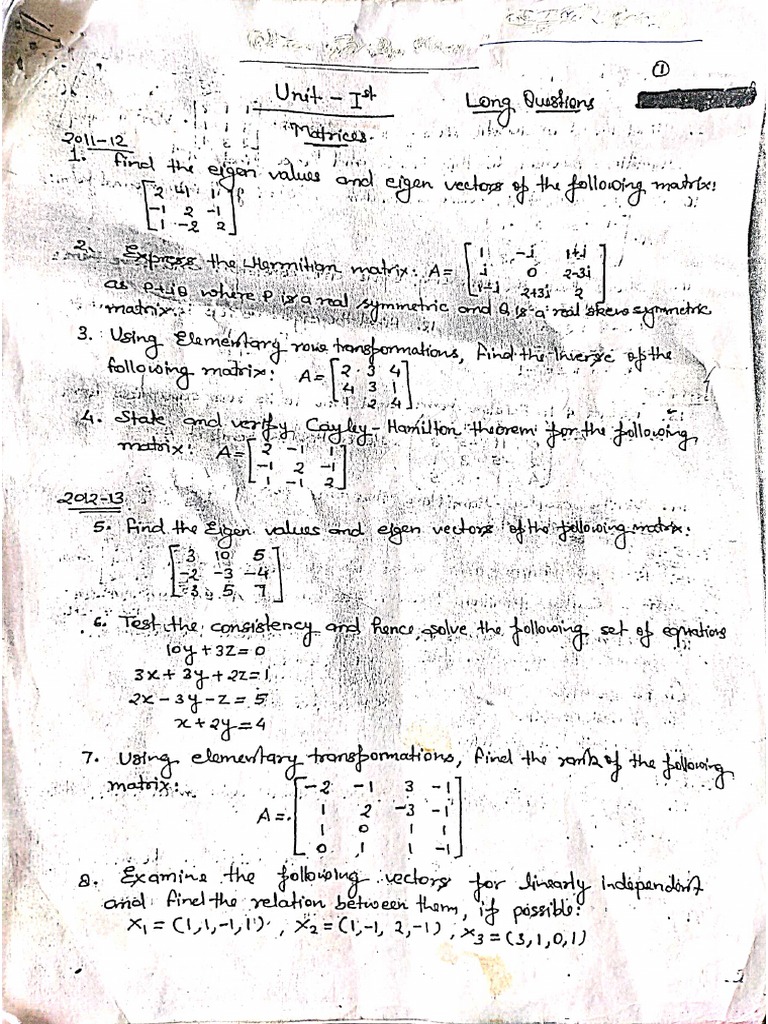 ①
Unit - Ist Long Questions
Matrices.
2011-12
1. Find the eigen values and eigen vectors of the following matrix:
2 1 1
-1 2 -1
1 -2 2
2. Express the Hermitian matrix: A= 1 -i 1+i
i 0 2-3i
1-i 2+3i 2
as P+iQ where P is a real symmetric and Q is a real skew symmetric
matrix.
3. Using Elementary row transformations, find the Inverse of the
following matrix: A= 2 3 4
4 3 1
1 2 4
4. State and verify Cayley-Hamilton theorem for the following
matrix: A= 2 -1 1
-1 2 -1
1 -1 2
2012-13
5. Find the Eigen values and eigen vectors of the following matrix:
3 10 5
-2 -3 -4
3 5 7
6. Test the consistency and hence solve the following set of equations
10y+3z=0
3x+3y+2z=1
2x-3y-z=5
x+2y=4
7. Using elementary transformations, find the rank of the following
matrix:
A= -2 -1 3 -1
1 2 -3 -1
1 0 1 1
0 1 1 -1
8. Examine the following vectors for linearly independent
and find the relation between them, if possible:
X1=(1,1,-1,1), X2=(1,-1,2,-1), X3=(3,1,0,1)